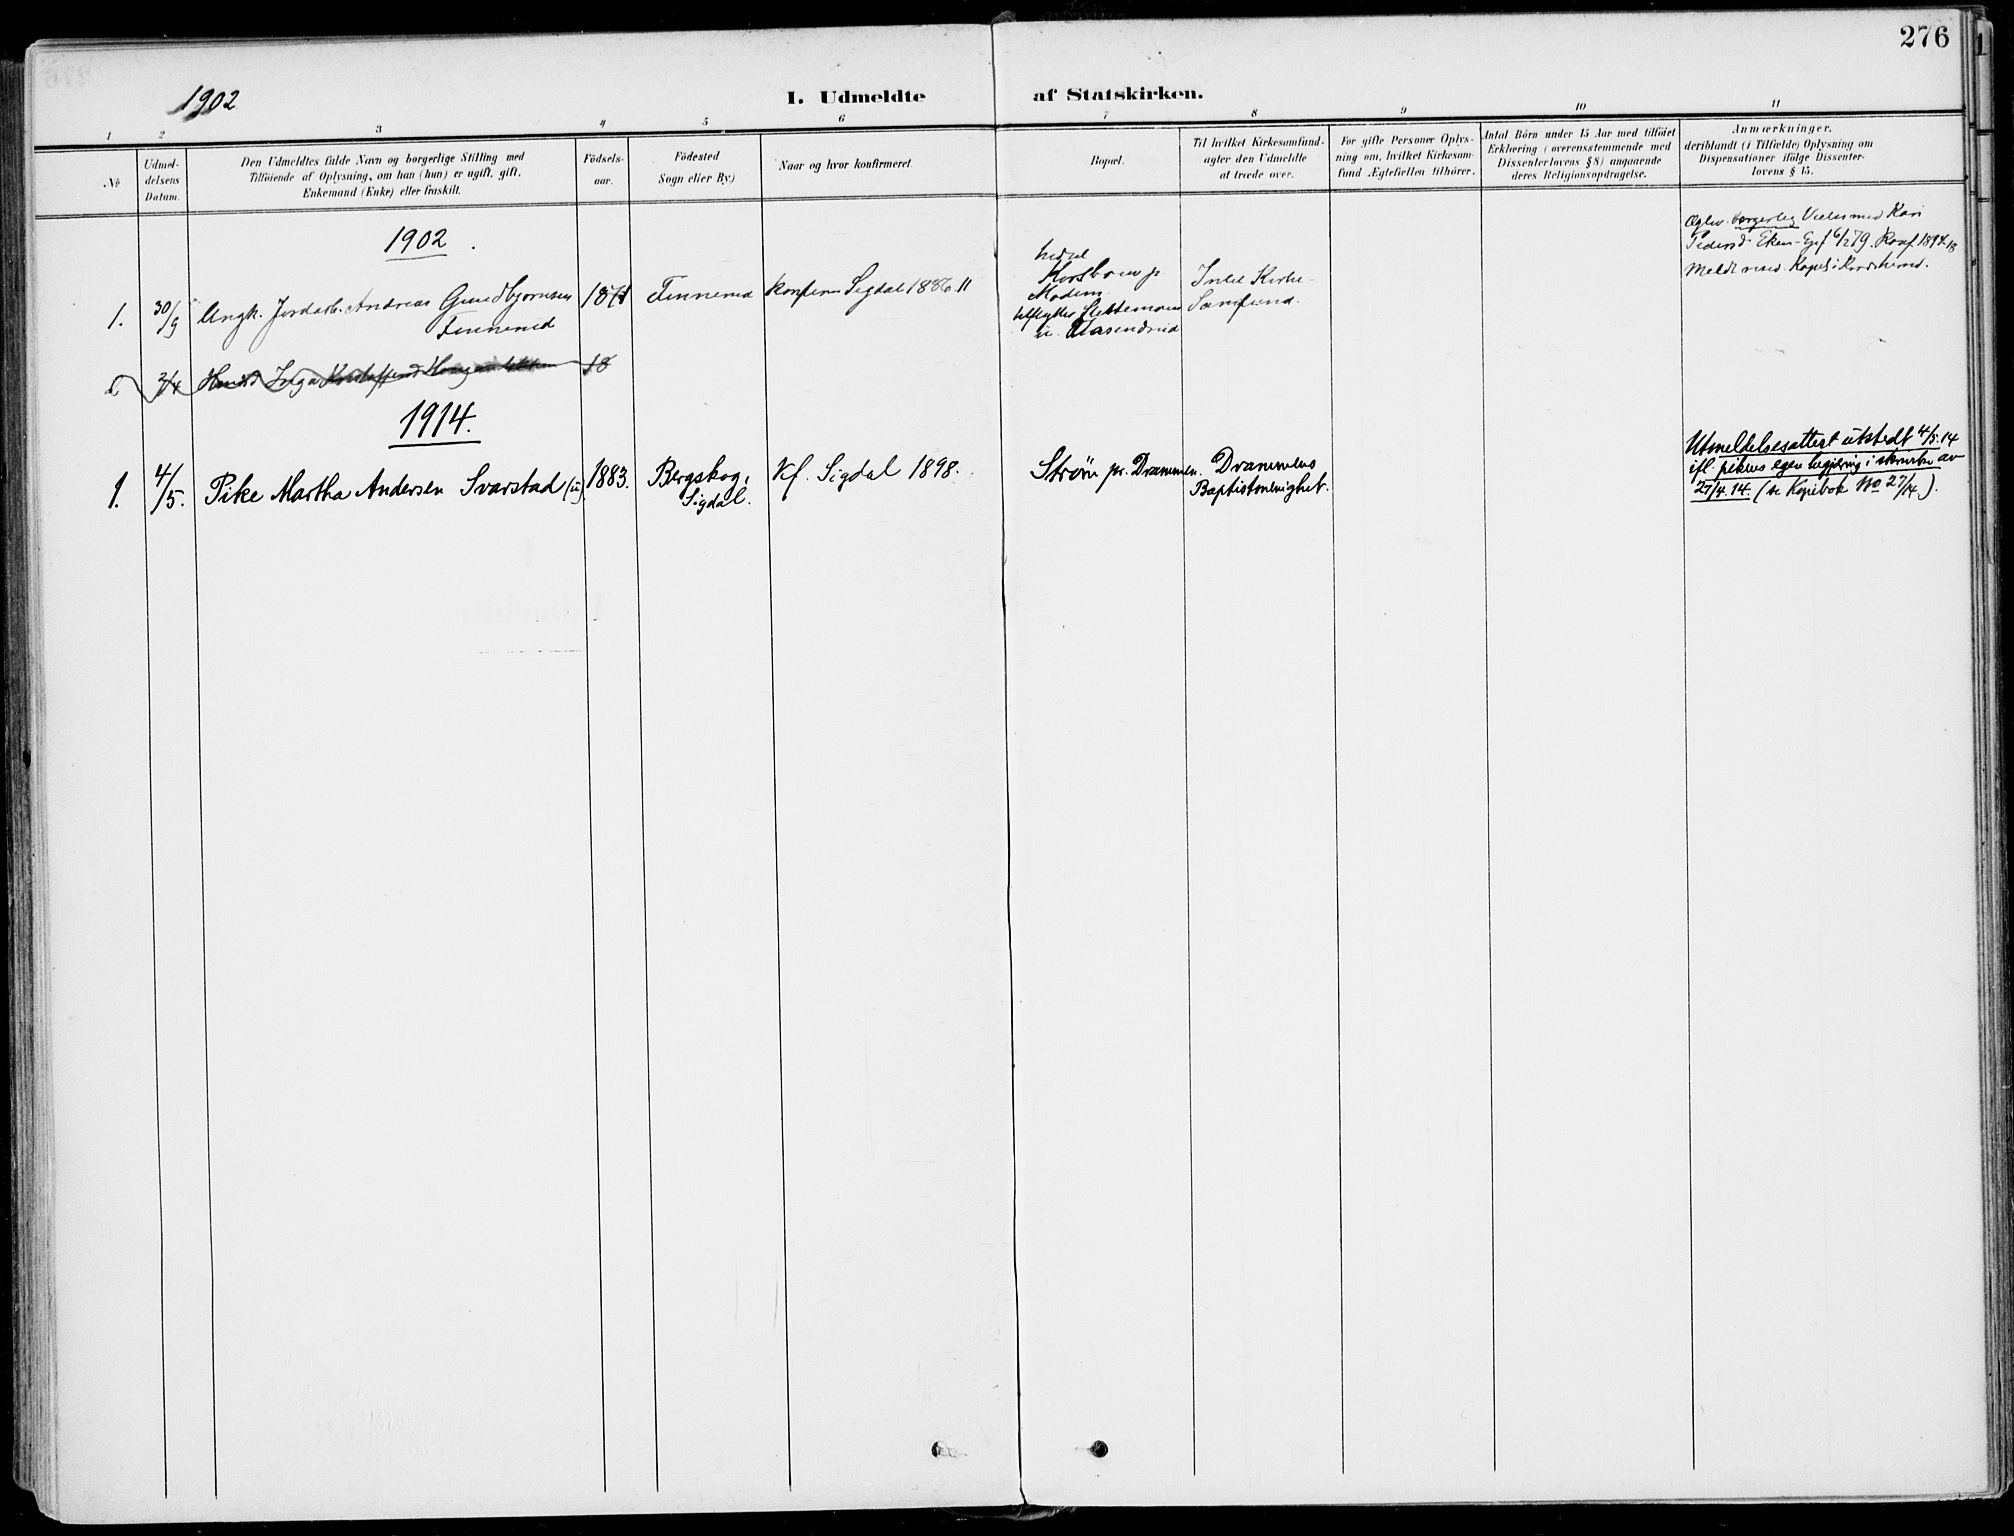 276
1902
I. Udmeldte af Statskirken.
1 2 3 4 5 6 7 8 9 10 11
No
Udmel-
delsens
Datum.
Den Udmeldtes fulde Navn og borgerlige Stilling med
Tilföiende af Oplysning, om han (hun) er ugift, gift,
Enkemand (Enke) eller fraskilt.
Födsels-
aar.
Födested
Sogn eller By.)
Naar og hvor konfirmeret.
Bopæl.
Til hvilket Kirkesamfund
agter den Udmeldte
at træde over.
For gifte Personer Oplys-
ning om, hvilket Kirkesam-
fund Ægtefællen tilhörer.
Antal Börn under 15 Aar med tilföiet
Erklæring (overensstemmende med
Dissenterlovens § 8) angaaende
deres Religionsopdragelse.
Anmærkninger,
deriblandt (i Tilfælde) Oplysning om
Dispensationer ifölge Dissenter-
lovens § 15.
1902
1. 30/9 Ungk. Jordarb. Andreas Gundbjørnsen
Finnerud
1871
Finnerud
Konfirm Sigdal 1886. 11
Modum
Aasendrud
Intet Kirke-
Samfund.
borgerlig Vielse med Kari
Pedersd.
2/4 Inga 18
1914.
1. 4/5. Pike Martha Andersen Svarstad (u)
1883.
Bergskog,
Sigdal.
Kf. Sigdal 1898.
Strøm pr. Drammen.
Drammens
Baptistmenighet.
Utmeldelsesattest utstedt 4/5.14
ifl. pikens egen begjæring i skrivelse av
27/4.14. (se Kopibok No 27/14).